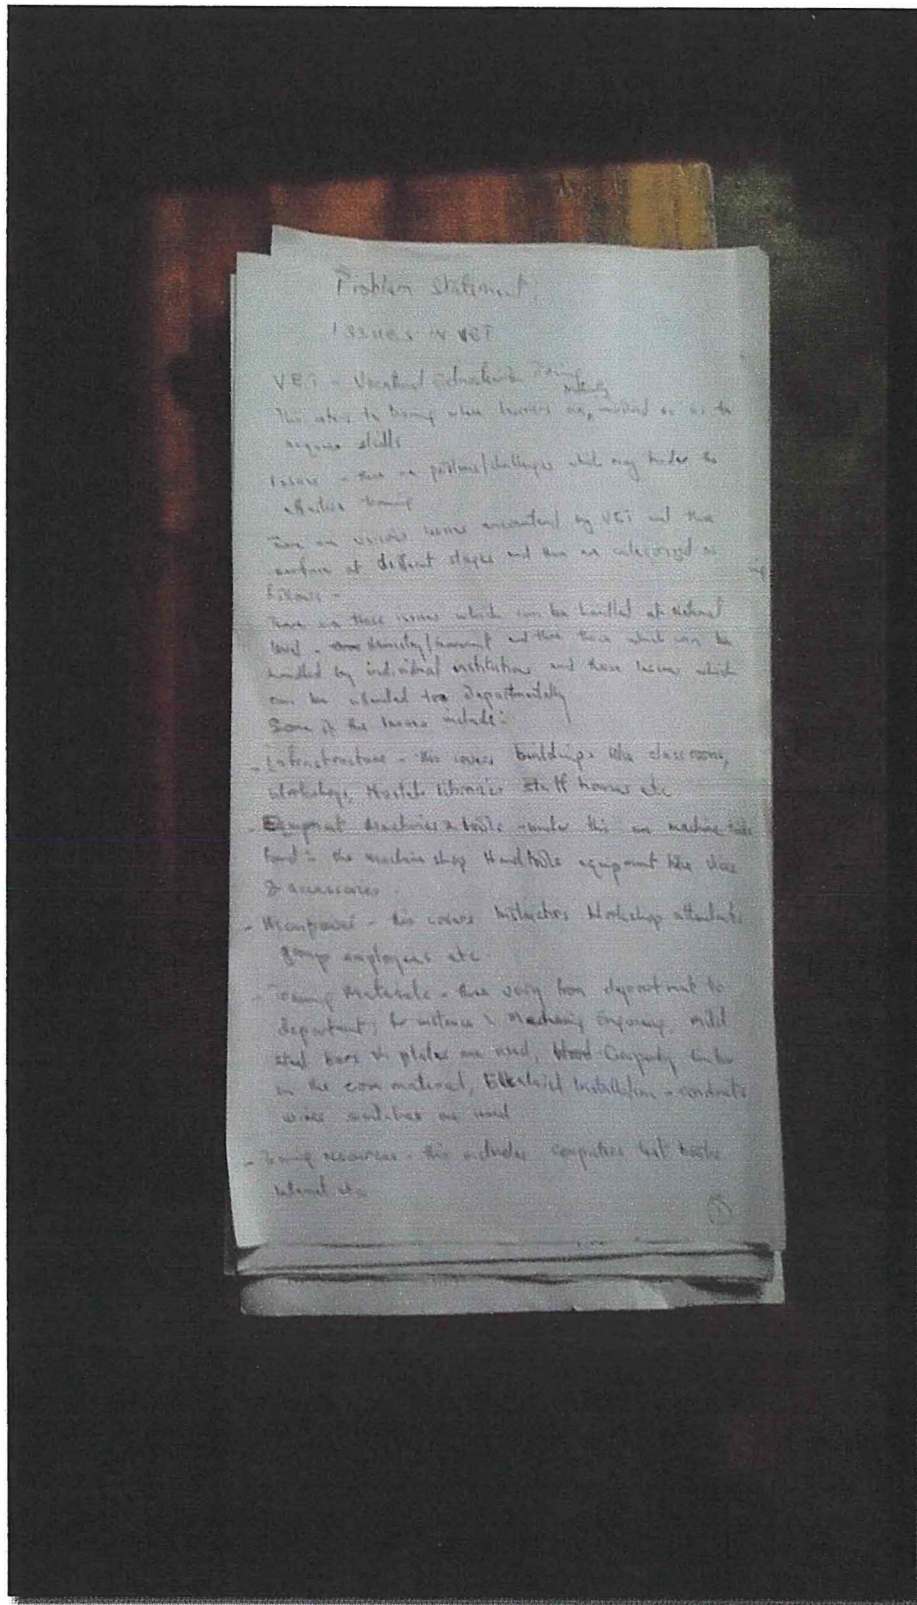 Problem Statement;
ISSUES IN VET
VET - Vocational Education Training
This refers to training where learners are involved so as to
acquire skills
Issues - these are problems/challenges which may hinder the
effective training
There are various issues encountered by VET and these
surface at different stages and then are categorized as
follows -
There are those issues which can be handled at National
level - Ministry/ and those which can be
handled by individual institutions and those issues which
can be attended too Departmentally
Some of the issues include:
- Infrastructure - this covers buildings like classrooms,
Workshops, Hostels Libraries Staff houses etc
- Equipment Machineries & tools - under this are machine tools
found in the machine shop Hand tools equipment like vices
& accessories.
- Manpower - this covers Instructors Workshop attendants
employees etc.
- Training Materials - these vary from department to
department; for instance in mild
steel bars & plates are used, Wood timber
is the core material, Electrical Installation - conduits
wires switches are used
- Training resources - this includes computers text books
internet etc